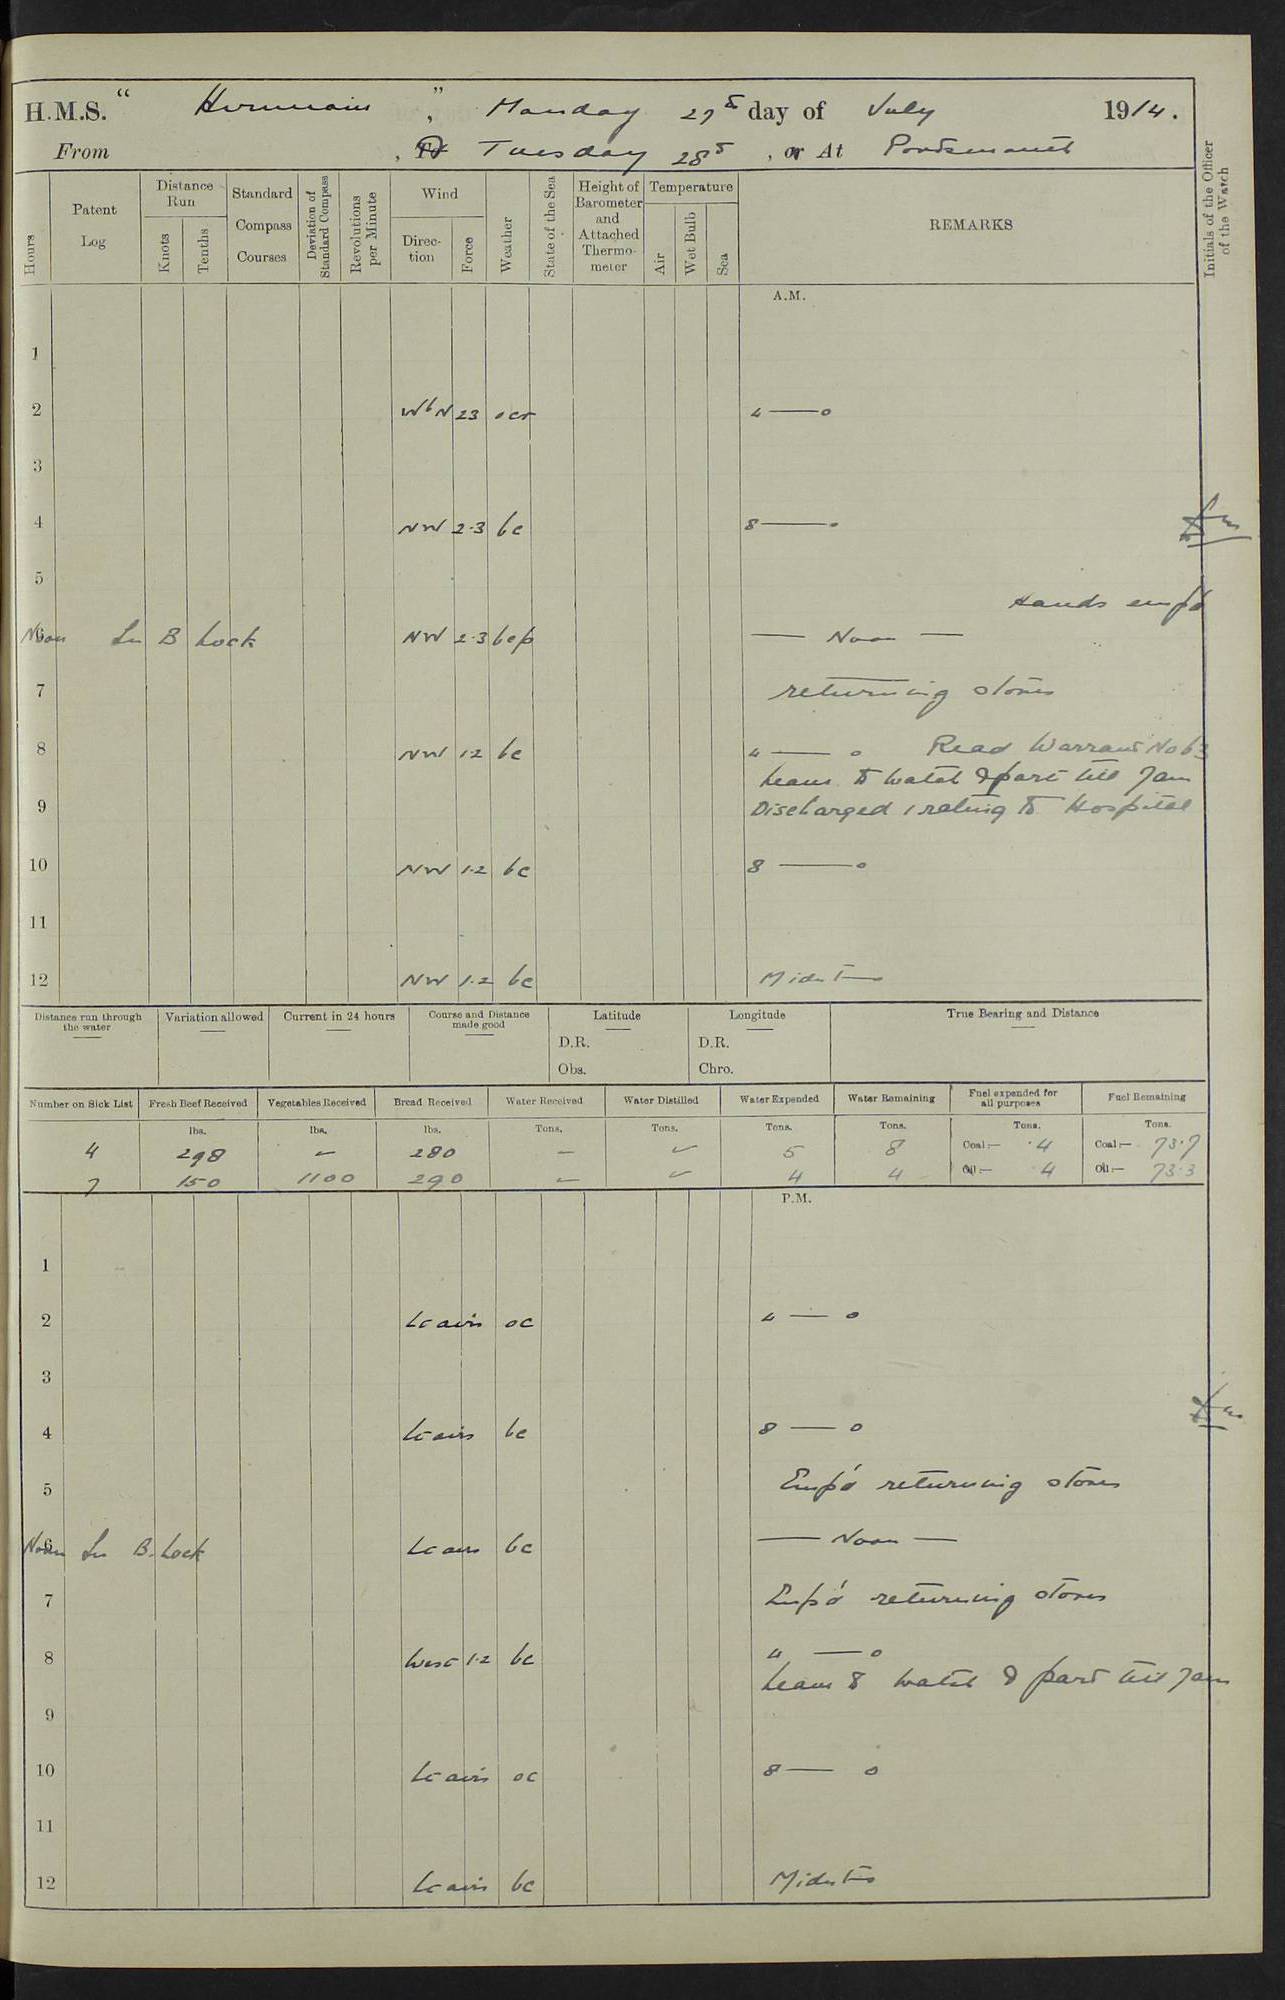 H.M.S. " Humain " , Monday 27th day of July 1914.
From , To Tuesday 28th , or At Portsmouth
Hours
Patent Log
Distance Run
Knots
Tenths
Standard Compass Courses
Deviation of Standard Compass
Revolutions per Minute
Wind
Direction
Force
Weather
State of the Sea
Height of Barometer and Attached Thermometer
Temperature
Air
Wet Bulb
Sea
REMARKS
Initials of the Officer of the Watch
A.M.
1
2 WbN 23 ocr 4 — 0
3
4 NW 2.3 bc 8 — 0
5
Hands emp'd
6 Noon In B Lock NW 2.3 bcp — Noon —
7 returning stores
8 NW 1.2 bc 4 — 0 Read Warrant No 63
Leave to watch & part till 7am
9 Discharged 1 rating to Hospital
10 NW 1.2 bc 8 — 0
11
12 NW 1.2 bc Midnt
Distance run through the water
Variation allowed
Current in 24 hours
Course and Distance made good
Latitude
D.R.
Obs.
Longitude
D.R.
Chro.
True Bearing and Distance
Number on Sick List Fresh Beef Received Vegetables Received Bread Received Water Received Water Distilled Water Expended Water Remaining Fuel expended for all purposes Fuel Remaining
lbs. lbs. lbs. Tons. Tons. Tons. Tons. Tons. Tons.
4 298 ✓ 280 — ✓ 5 8 Coal:— ·4 Coal:— 73·7
7 150 1100 290 — ✓ 4 4 Oil:— 4 Oil:— 73·3
P.M.
1
2 Lt airs oc 4 — 0
3
4 Lt airs bc 8 — 0
5 Emp'd returning stores
6 Noon In B. Lock Lt airs bc — Noon —
7 Emp'd returning stores
8 West 1.2 bc 4 — 0
Leave to watch & part till 7am
9
10 Lt airs oc 8 — 0
11
12 Lt airs bc Midnt